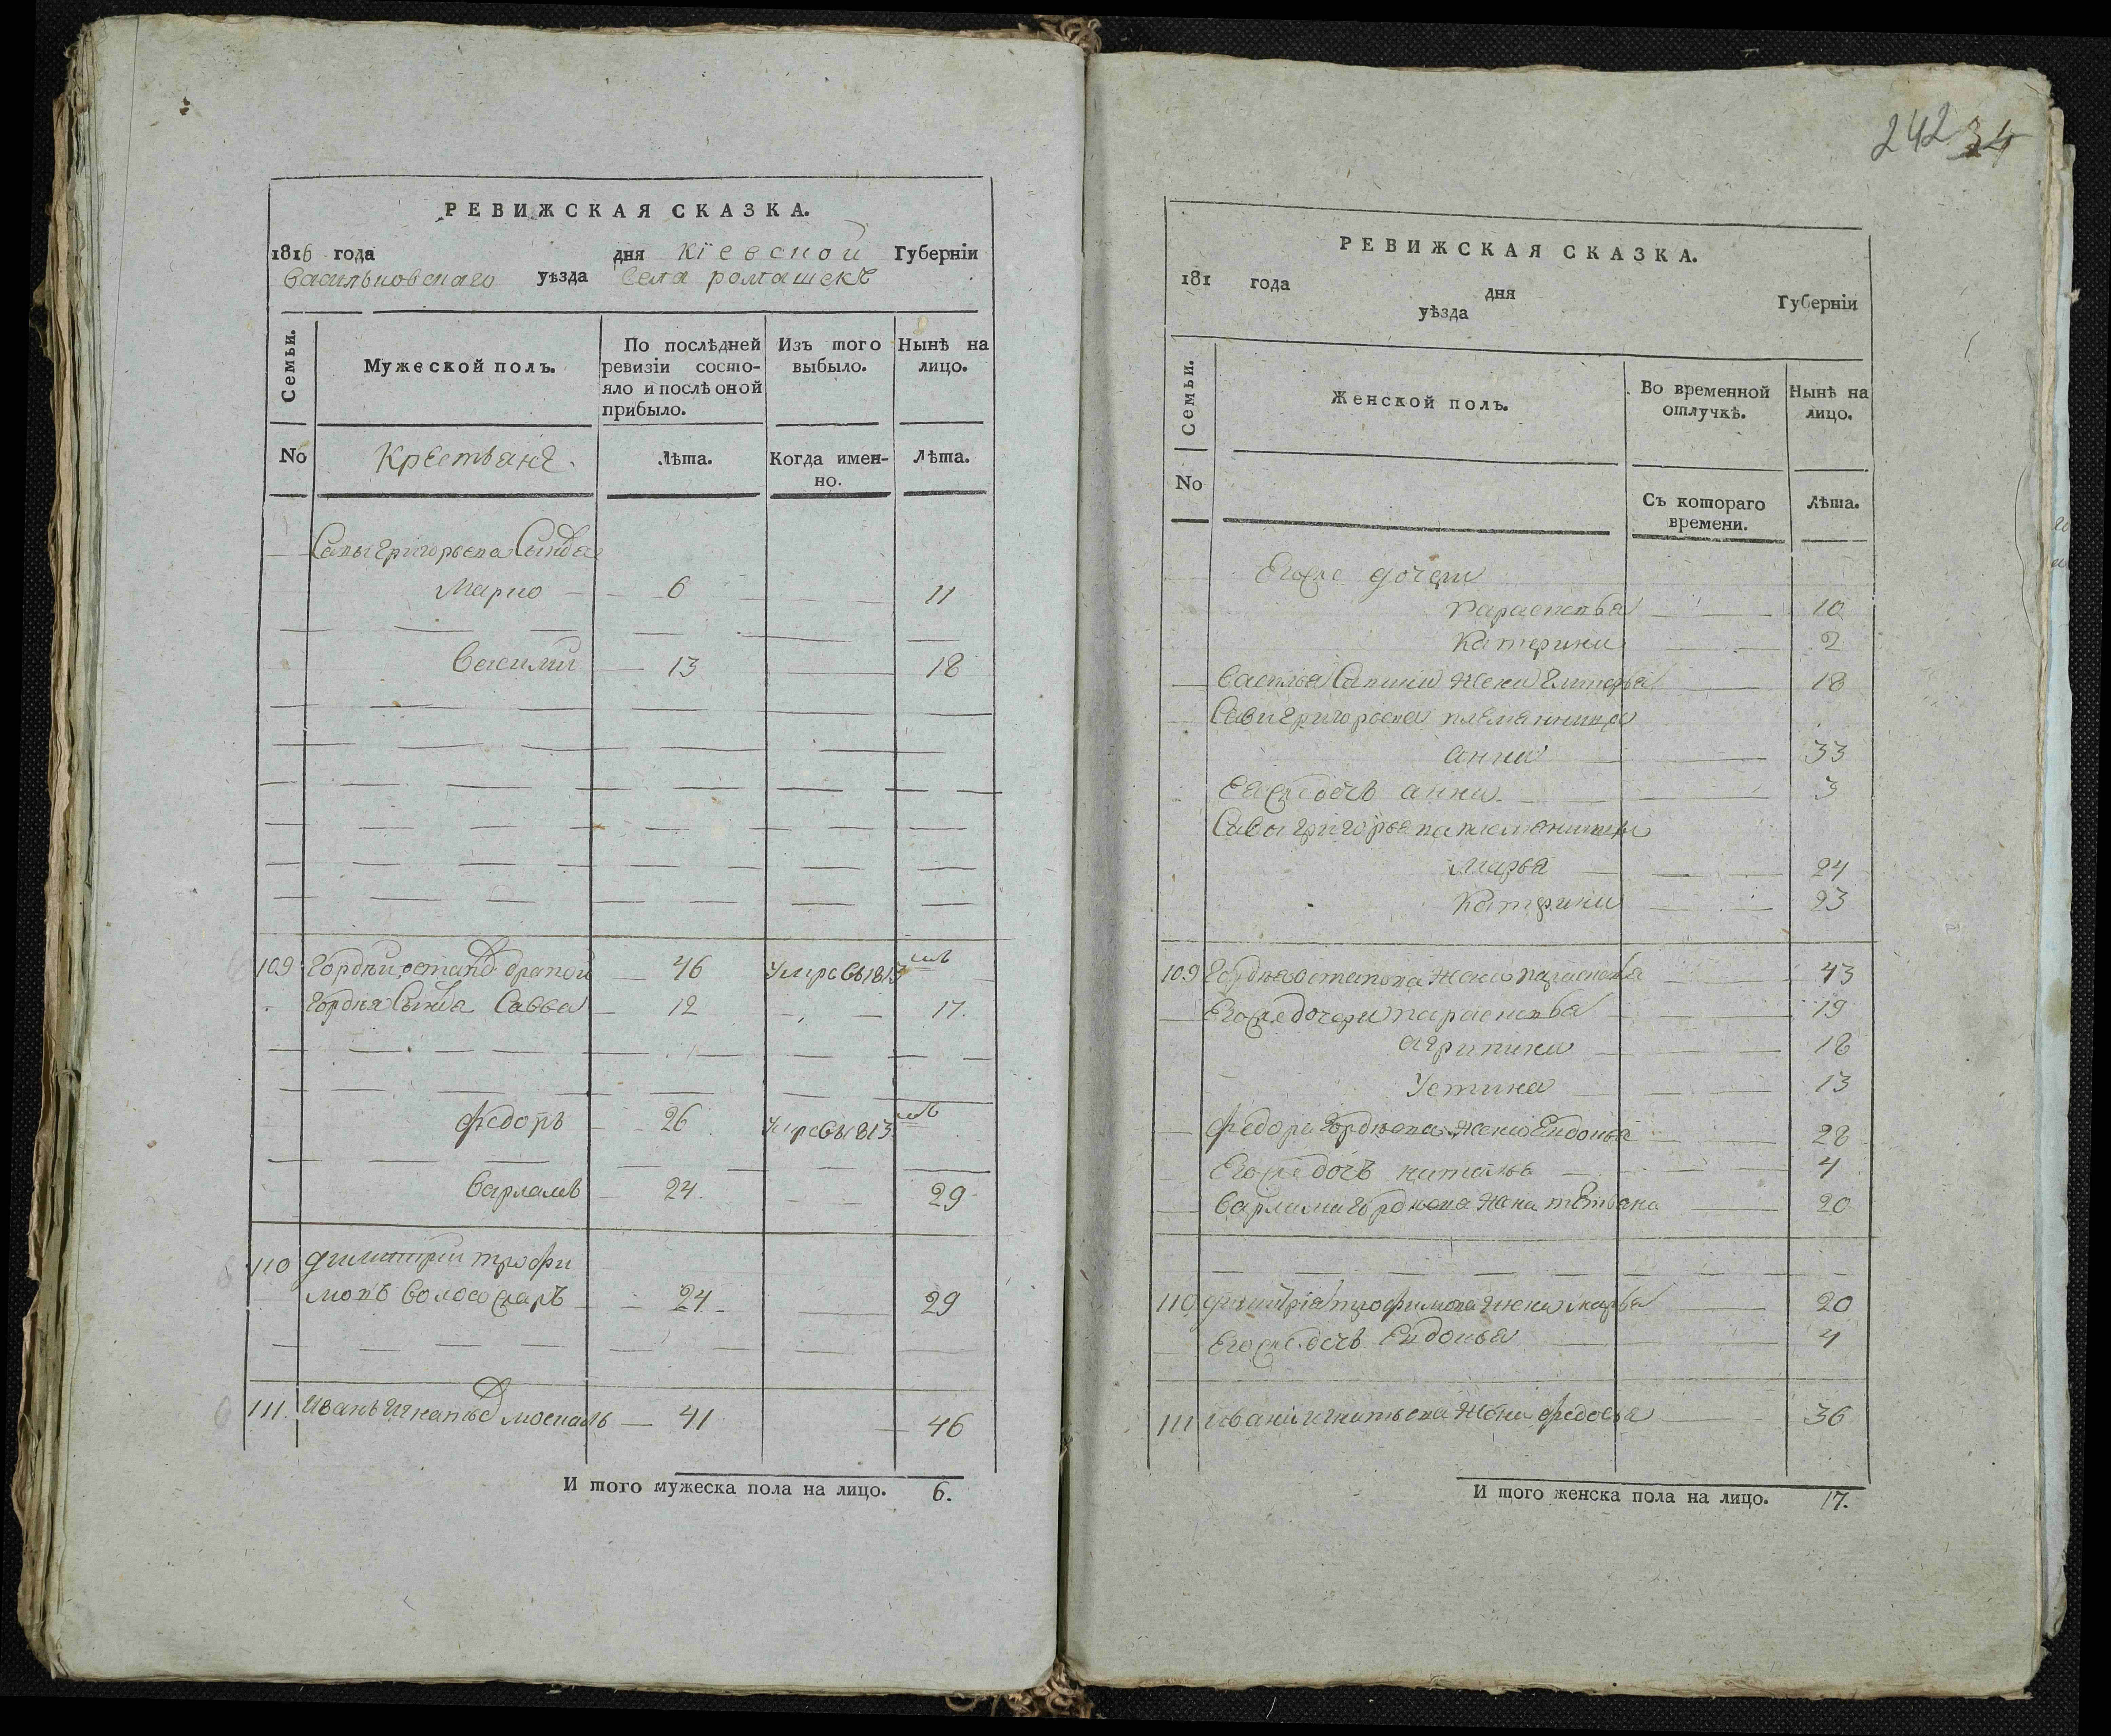 РЕВИЖСКАЯ СКАЗКА.
1816 года дня Кіевской Губерніи
Васильковскаго уѣзда Села ромашекъ
Семьи.
Мужеской полъ.
По послѣдней ревизіи состо-
яло и послѣ оной
прибыло.
Изъ того
выбыло.
Нынѣ на
лицо.
No
Крестьяне.
Лѣта.
Когда имен-
но.
Лѣта.
Савы григорьева Сынов
Марко 6 11
Василий 13 18
109 Гордѣй остапов 46 Умре Въ 1813мъ
Гордѣя Сынъ Савва 12 17.
федоръ 26 Умре Въ 1813мъ
Варламъ 24. 29
110 димитрий трофи
мовъ Волосожаръ 24 29
111. Иванъ Игнатьев москаль 41 46
И того мужеска пола на лицо. 6.
242 34
РЕВИЖСКАЯ СКАЗКА.
181 года дня Губерніи
уѣзда
Семьи.
Женской полъ.
Во временной
отлучкѣ.
Нынѣ на
лицо.
No
Съ котораго
времени.
Лѣта.
Егоже дочери
Параскевья 10
Катерина 2
Василья Савина жена 18
Савы григорьева племянница
анна 33
Еяже дочь анна 3
Савы григорьева племяницы
Марья 24
Катерина 23
109 Гордѣя остапова жена параскевья 43
Егоже дочери параскевья 19
агрипина 18
Устина 13
федора Гордѣева жена Евдокия 28
Егоже дочь наталья 4
Варлама Гордѣева жена тетьяна 20
110 димитрія трофимова жена марья 20
Егоже дочь Евдокия 4
111 Ивана игнатьева жена федосья 36
И того женска пола на лицо. 17.